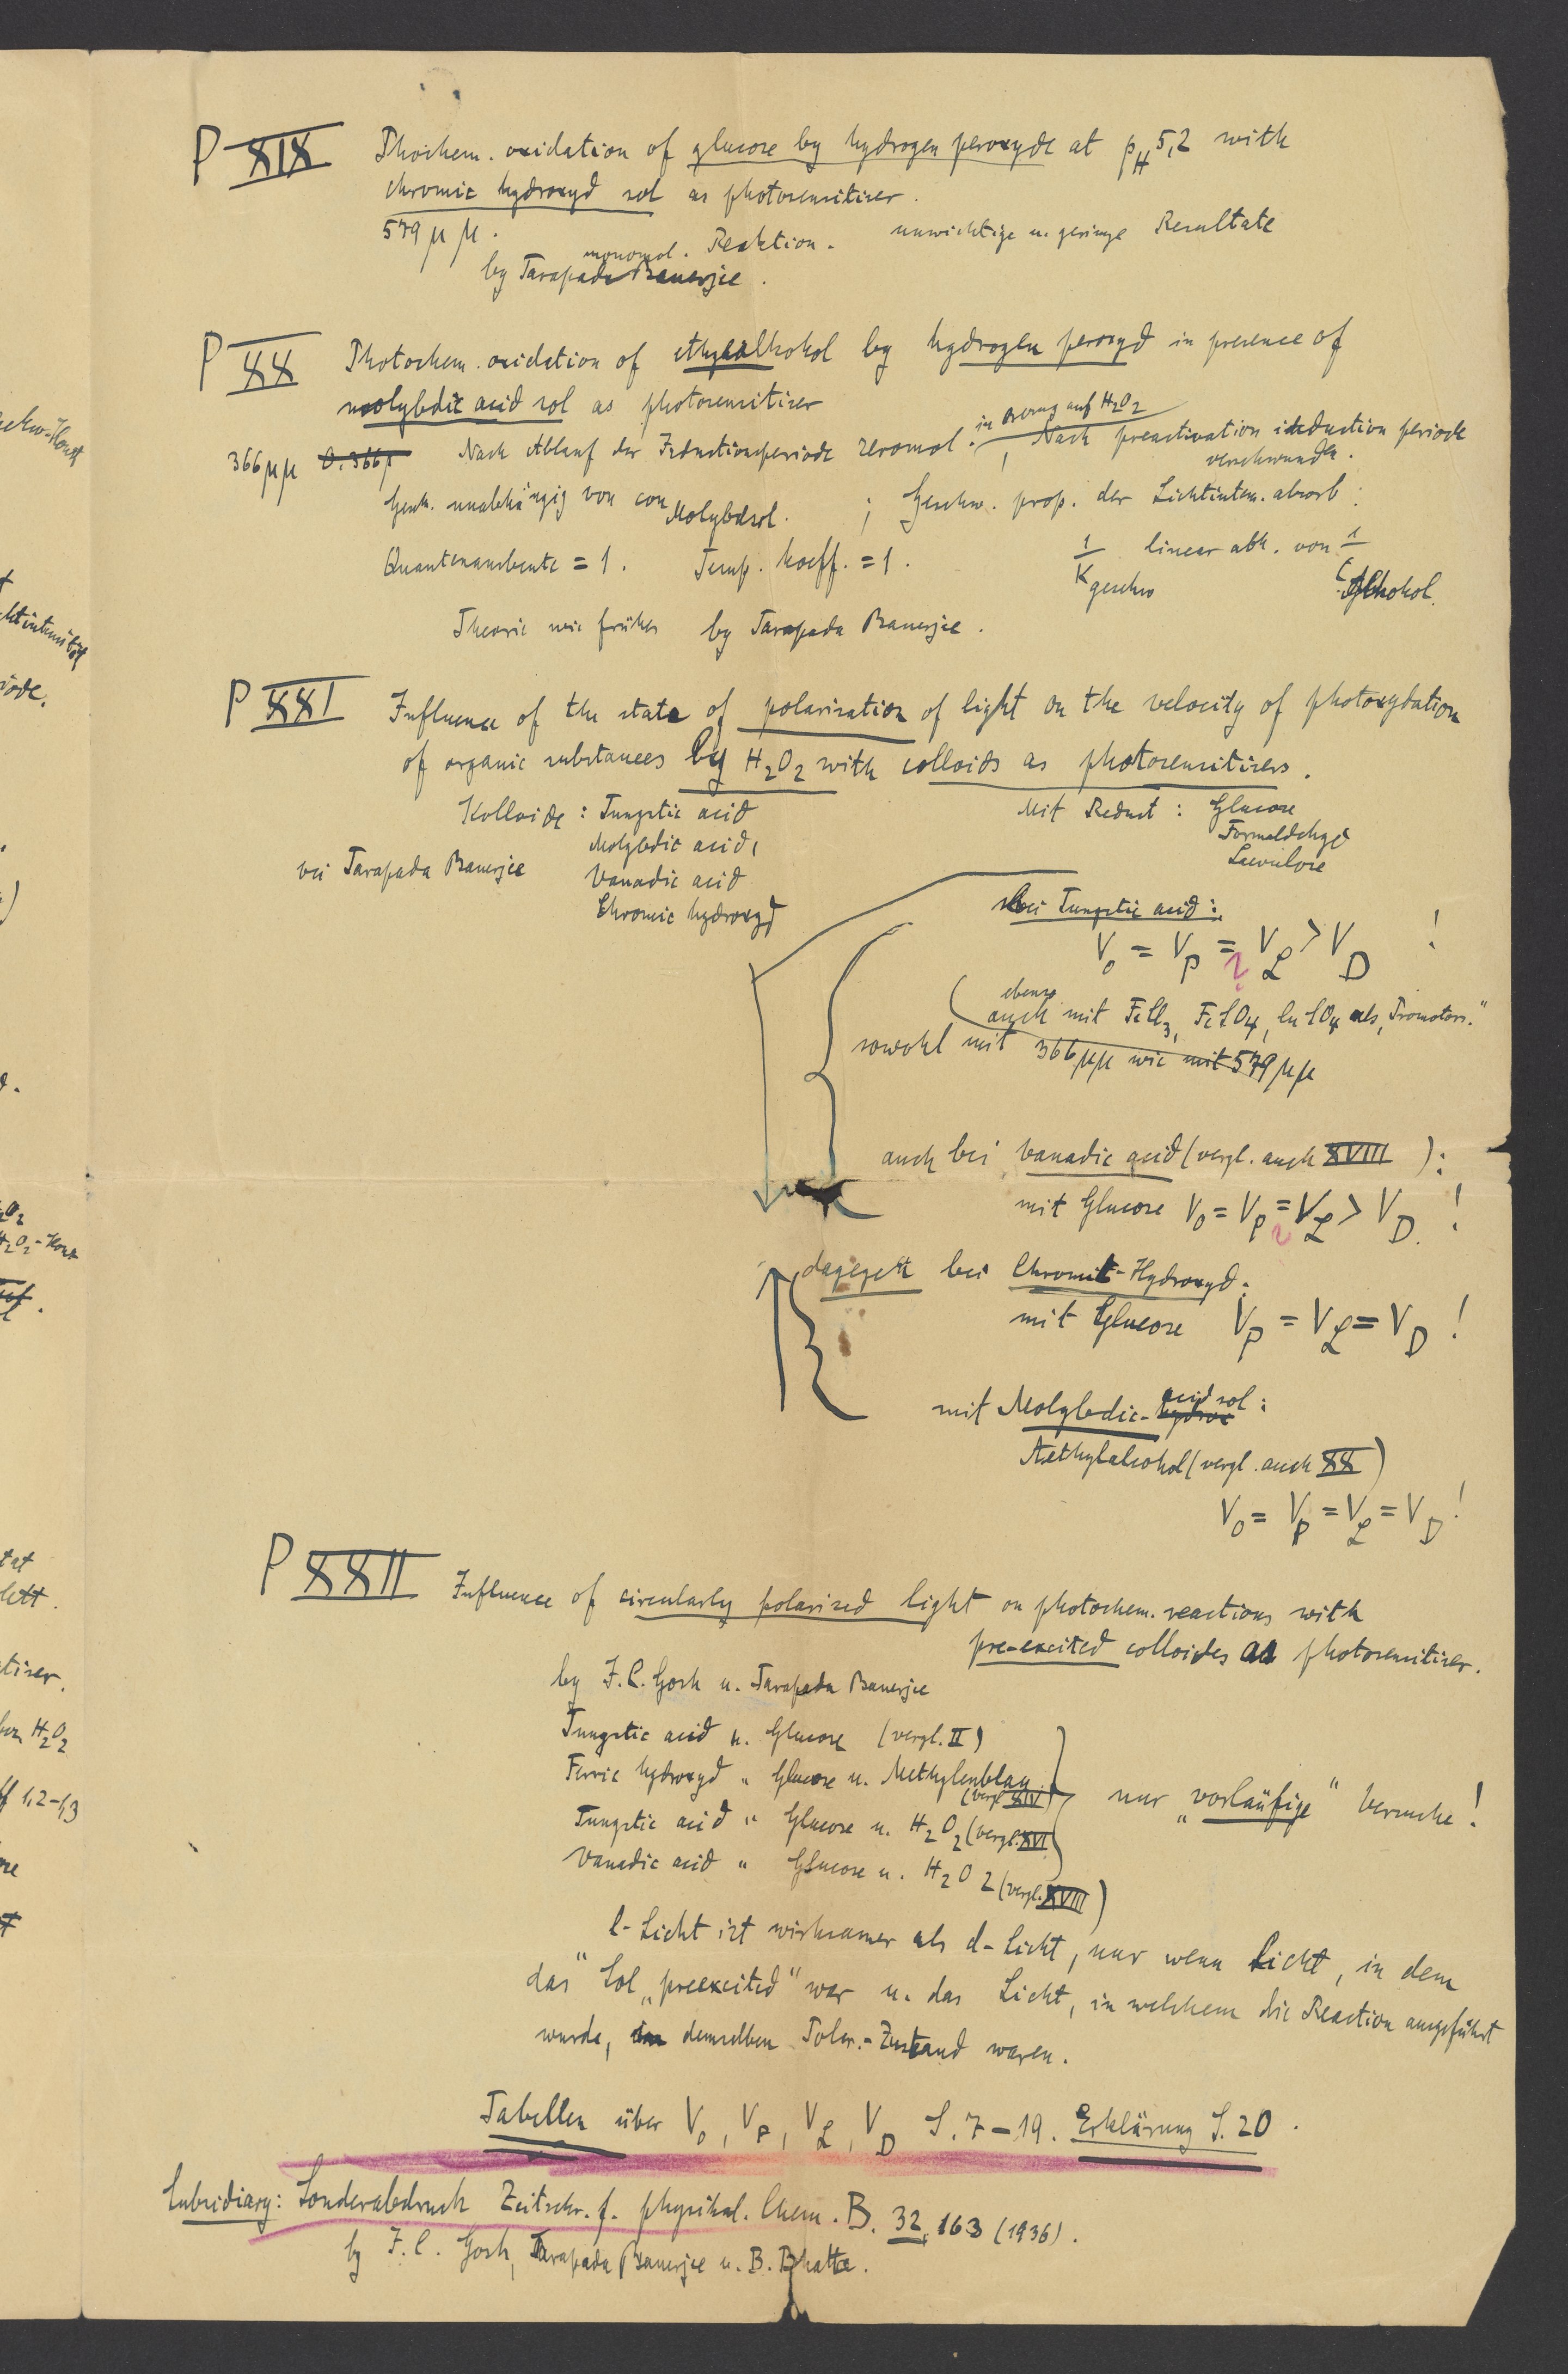 P XIX Photochem. oxidation of glucose by hydrogen peroxyde at pH 5,2 with
chromic hydroxyd sol as photosensitiser.
579 μμ.
monomol. Reaktion. unwichtige u. geringe Resultate
by Tarapada Banerjee.
P XX Photochem. oxidation of ethylalkohol by hydrogen peroxyd in presence of
molybdic acid sol as photosensitiser
in Bezug auf H2O2
366 μμ Nach Ablauf der Inductionsperiode zeromol. , Nach preactivation induction periode
verschwunden.
Geschw. unabhängig von con Molybdsol. ; Geschw. prop. der Lichtinten. absorb.
Quantenausbeute = 1. Temp. Koeff. = 1. 1/K geschw linear abh. von 1/C Alkohol.
Theorie wie früher by Tarapada Banerjee.
P XXI Influence of the state of polarisation of light on the velocity of photoxydation
of organic substances by H2O2 with colloids as photosensitisers.
Kolloide: Tungstic acid
Molybdic acid,
Vanadic acid
Chromic hydroxyd
bei Tarapada Banerjee
Mit Reduct: Glucose
Formaldehyd
Laevulose
bei Tungstic acid:
V0 = VP = VL > VD !
(ebenso auch mit FeCl3, FeSO4, CuSO4 als „Promotors."
sowohl mit 366 μμ wie mit 579 μμ
auch bei Vanadic acid (vergl. auch XVIII):
mit Glucose V0 = VP = VL > VD !
dagegen bei Chromic-Hydroxyd:
mit Glucose VP = VL = VD !
mit Molybdic- acid sol:
Aethylalcohol (vergl. auch XX)
V0 = VP = VL = VD !
P XXII Influence of circularly polarised light on photochem. reactions with
pre-excited colloides as photosensitiser.
by J.C. Gosh u. Tarapada Banerjee
Tungstic acid u. Glucose (vergl. II)
Ferric hydroxyd " Glucose u. Methylenblau (vergl. XIV)
Tungstic acid " Glucose u. H2O2 (vergl. XVI)
Vanadic acid " Glucose u. H2O2 (vergl. XVIII)
nur „vorläufige" Versuche!
l-Licht ist wirksamer als d-Licht, nur wenn Licht, in dem
das Sol „preexcited" war u. das Licht, in welchem die Reaction ausgeführt
wurde, in demselben Polar.-Zustand waren.
Tabellen über V0, VP, VL, VD S. 7-19. Erklärung S. 20.
Subsidiary: Sonderabdruck Zeitschr. f. physikal. Chem. B. 32, 163 (1936).
by J.C. Gosh, Tarapada Banerjee u. B. Bhatta.